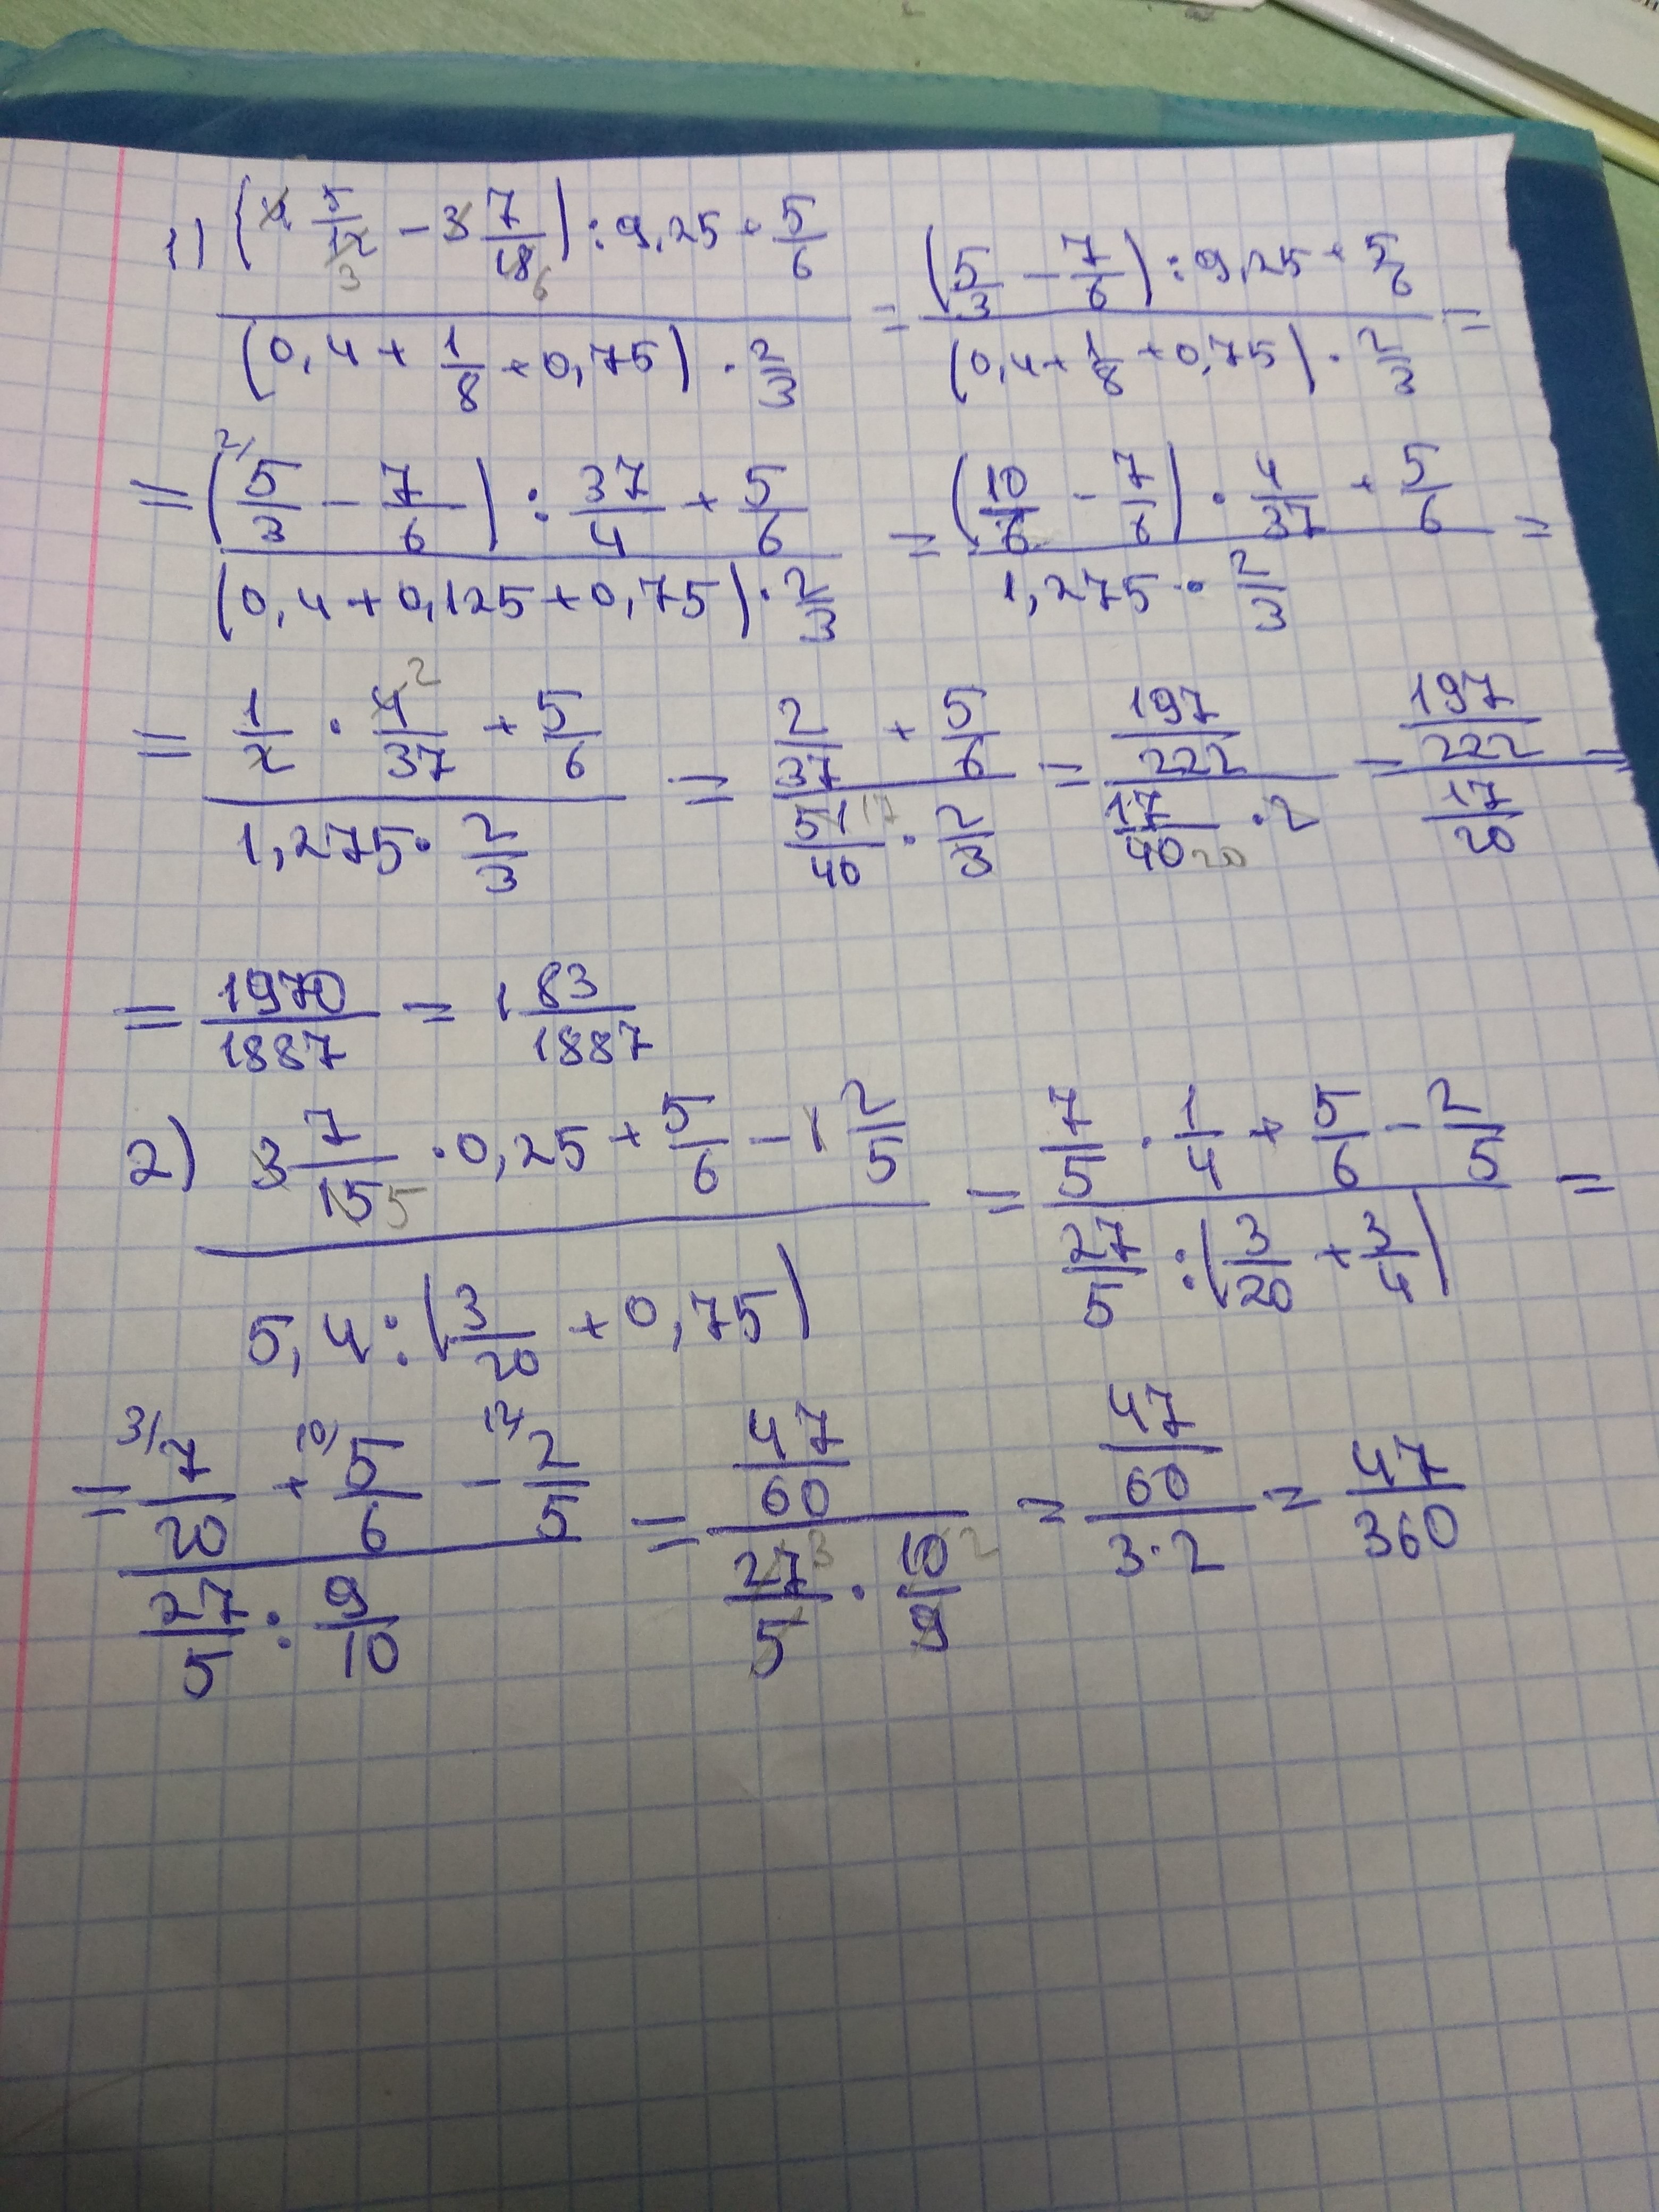 1) (4 5/12 3 − 3 7/18 6) : 9,25 + 5/6 / (0,4 + 1/8 + 0,75) · 2/3 = (5/3 − 7/6) : 9,25 + 5/6 / (0,4 + 1/8 + 0,75) · 2/3 =
= (2/ 5/3 − 7/6) : 37/4 + 5/6 / (0,4 + 0,125 + 0,75) · 2/3 = (10/6 − 7/6) · 4/37 + 5/6 / 1,275 · 2/3 =
= 1/2 · 4 2/37 + 5/6 / 1,275 · 2/3 = 2/37 + 5/6 / 51 17/40 · 2/3 = 197/222 / 17/40 20 · 2 = 197/222 / 17/20 =
= 1970/1887 = 1 83/1887
2) 3 7/15 5 · 0,25 + 5/6 − 1 2/5 / 5,4 : (3/20 + 0,75) = 7/5 · 1/4 + 5/6 − 2/5 / 27/5 : (3/20 + 3/4) =
= 3/ 7/20 + 10/ 5/6 − 12 2/5 / 27/5 : 9/10 = 47/60 / 27 3/5 · 10 2/9 = 47/60 / 3·2 = 47/360